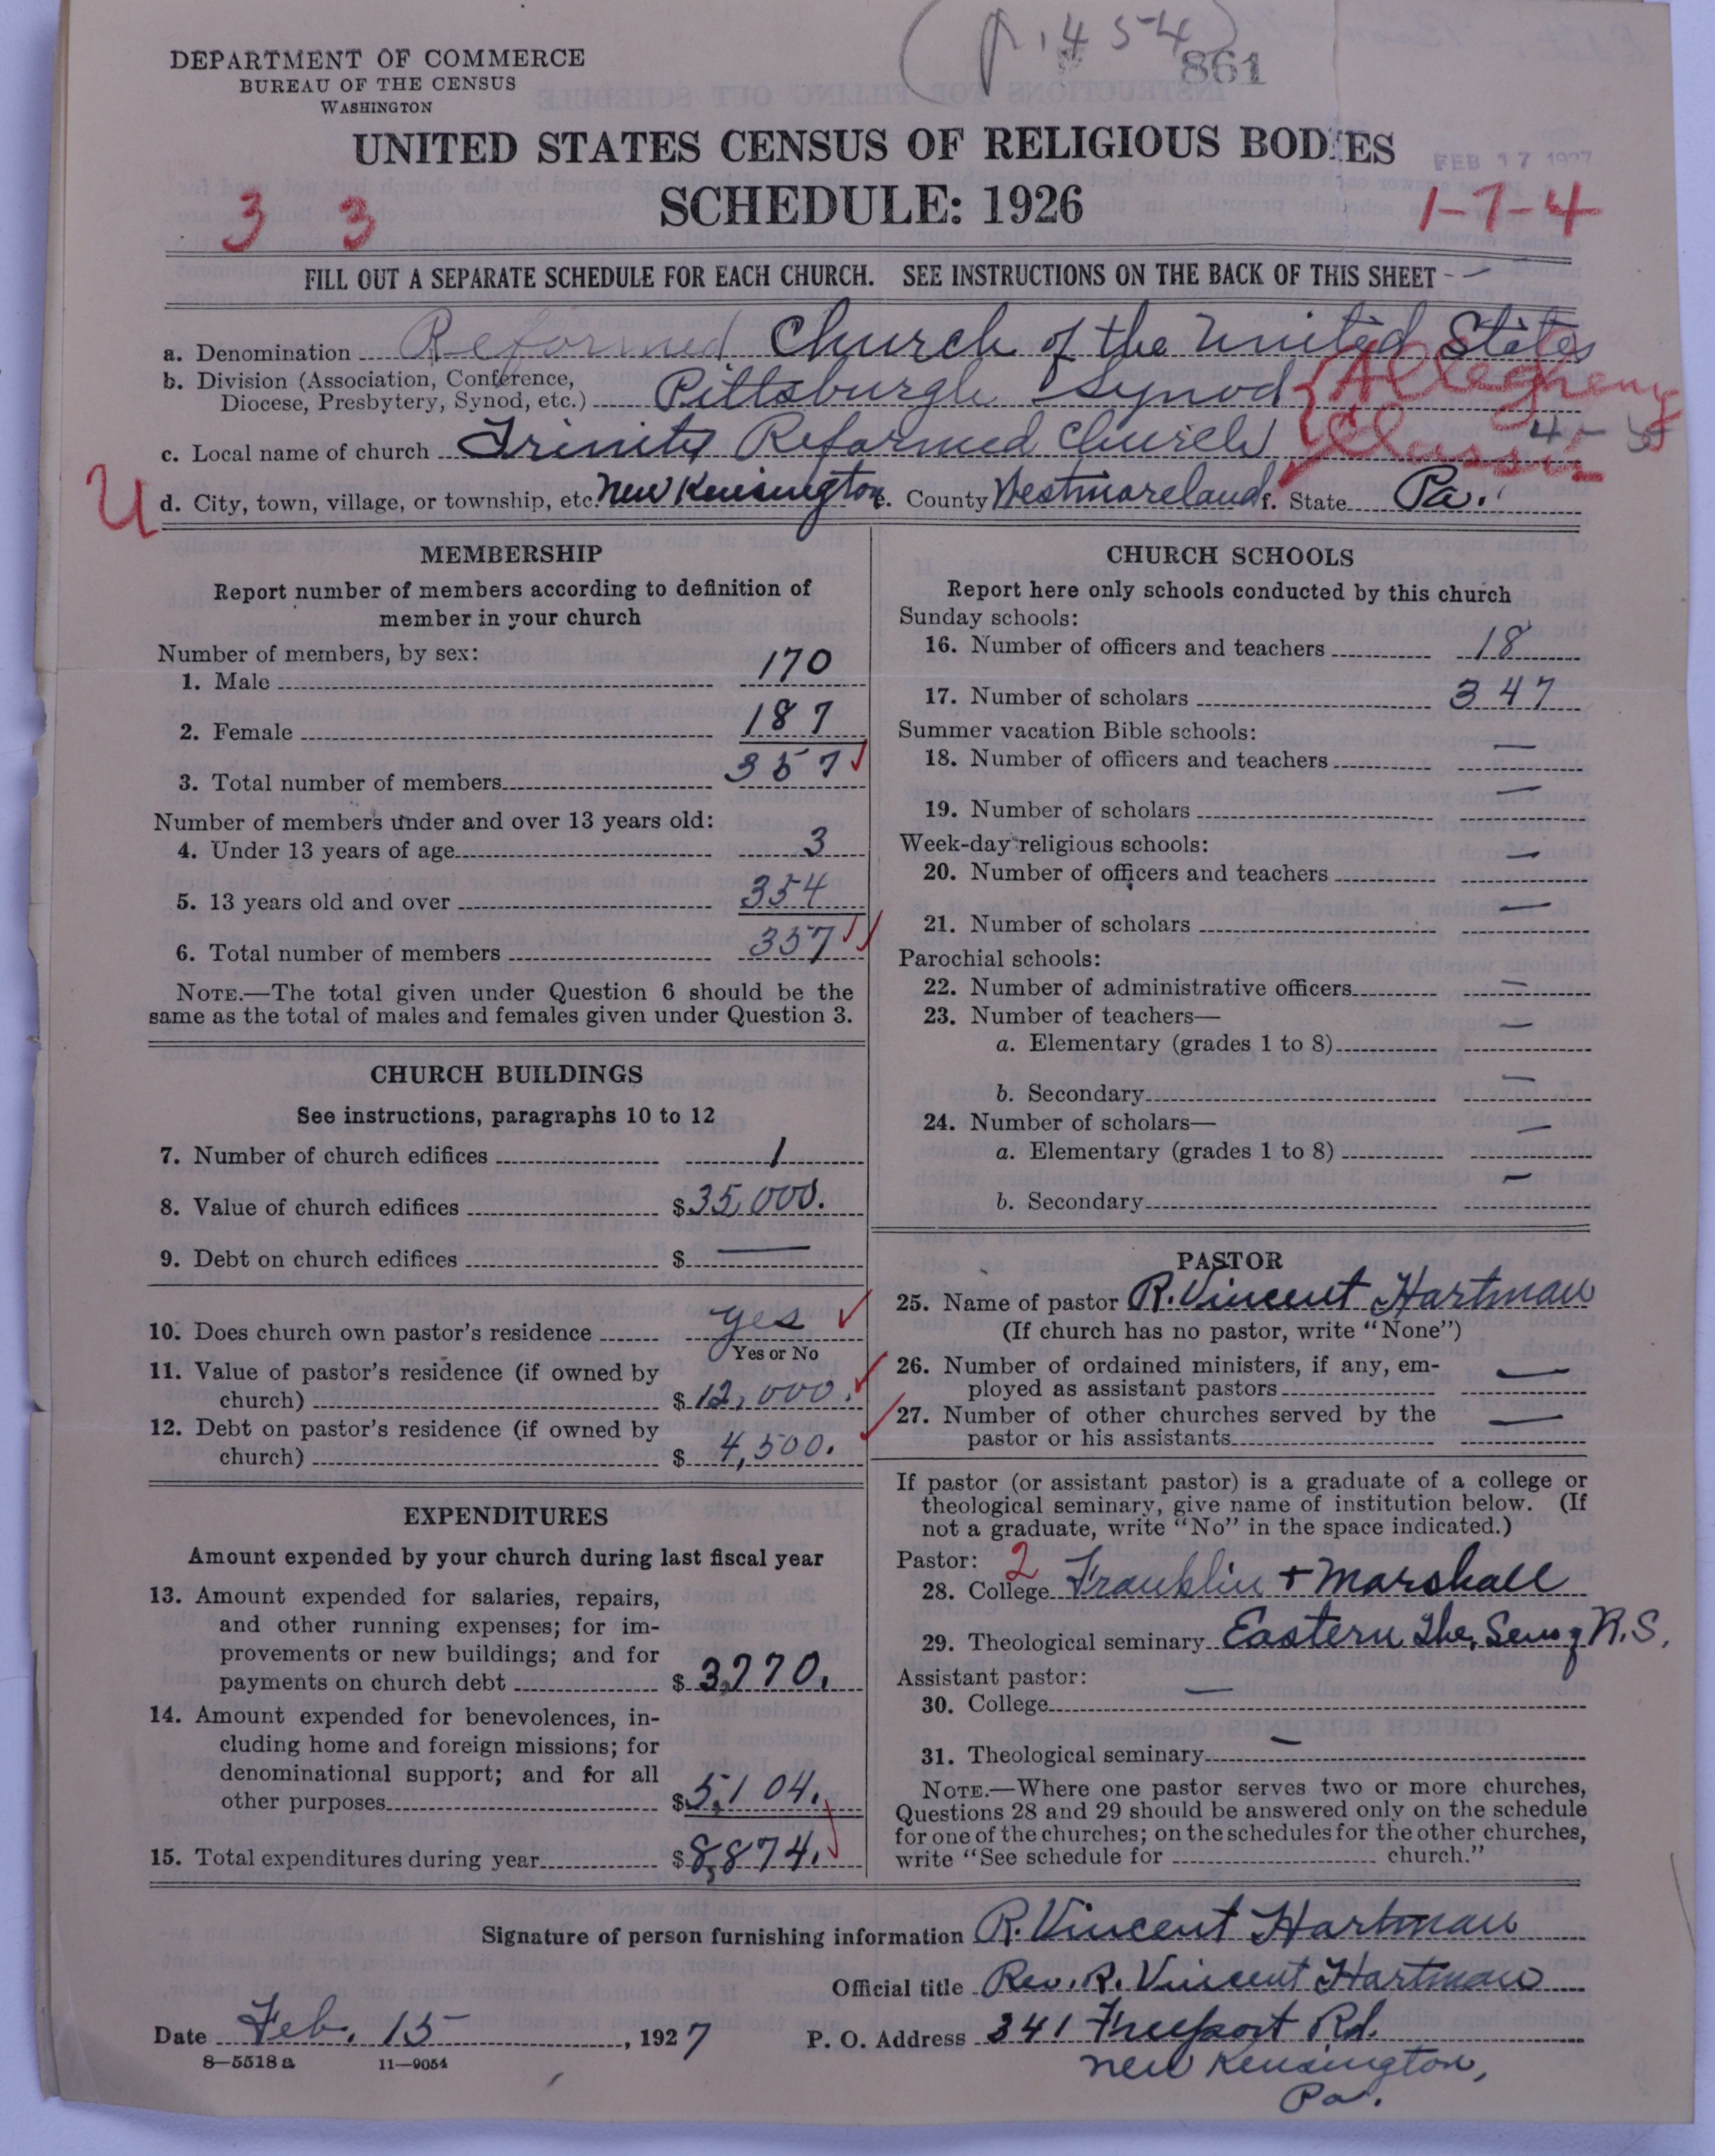 (P. 454)
861
DEPARTMENT OF COMMERCE
BUREAU OF THE CENSUS
WASHINGTON
UNITED STATES CENSUS OF RELIGIOUS BODIES
FEB 17 1927
SCHEDULE: 1926
3 3
1-7-4
FILL OUT A SEPARATE SCHEDULE FOR EACH CHURCH. SEE INSTRUCTIONS ON THE BACK OF THIS SHEET
a. Denomination Reformed Church of the United States
b. Division (Association, Conference, Diocese, Presbytery, Synod, etc.) Pittsburgh Synod { Allegheny Classis
c. Local name of church Trinity Reformed Church
U
d. City, town, village, or township, etc. New Kensington e. County Westmoreland f. State Pa.
MEMBERSHIP
Report number of members according to definition of
member in your church
Number of members, by sex:
1. Male 170
2. Female 187
3. Total number of members 357
Number of members under and over 13 years old:
4. Under 13 years of age 3
5. 13 years old and over 354
6. Total number of members 357
NOTE.—The total given under Question 6 should be the
same as the total of males and females given under Question 3.
CHURCH BUILDINGS
See instructions, paragraphs 10 to 12
7. Number of church edifices 1
8. Value of church edifices $35,000.
9. Debt on church edifices $ —
10. Does church own pastor's residence yes
Yes or No
11. Value of pastor's residence (if owned by
church) $12,000.
12. Debt on pastor's residence (if owned by
church) $4,500.
EXPENDITURES
Amount expended by your church during last fiscal year
13. Amount expended for salaries, repairs,
and other running expenses; for im-
provements or new buildings; and for
payments on church debt $3,770.
14. Amount expended for benevolences, in-
cluding home and foreign missions; for
denominational support; and for all
other purposes $5,104.
15. Total expenditures during year $8,874.
CHURCH SCHOOLS
Report here only schools conducted by this church
Sunday schools:
16. Number of officers and teachers 18
17. Number of scholars 347
Summer vacation Bible schools:
18. Number of officers and teachers —
19. Number of scholars —
Week-day religious schools:
20. Number of officers and teachers —
21. Number of scholars —
Parochial schools:
22. Number of administrative officers —
23. Number of teachers—
a. Elementary (grades 1 to 8) —
b. Secondary —
24. Number of scholars—
a. Elementary (grades 1 to 8) —
b. Secondary —
PASTOR
25. Name of pastor R. Vincent Hartman
(If church has no pastor, write "None")
26. Number of ordained ministers, if any, em-
ployed as assistant pastors —
27. Number of other churches served by the
pastor or his assistants —
If pastor (or assistant pastor) is a graduate of a college or
theological seminary, give name of institution below. (If
not a graduate, write "No" in the space indicated.)
Pastor: 2
28. College Franklin + Marshall
29. Theological seminary Eastern The. Sem of R.S.
Assistant pastor:
30. College —
31. Theological seminary —
NOTE.—Where one pastor serves two or more churches,
Questions 28 and 29 should be answered only on the schedule
for one of the churches; on the schedules for the other churches,
write "See schedule for church."
Signature of person furnishing information R. Vincent Hartman
Official title Rev. R. Vincent Hartman
Date Feb. 15, 1927
P. O. Address 341 Freeport Rd.
New Kensington,
Pa.
8—5518 a 11—9054